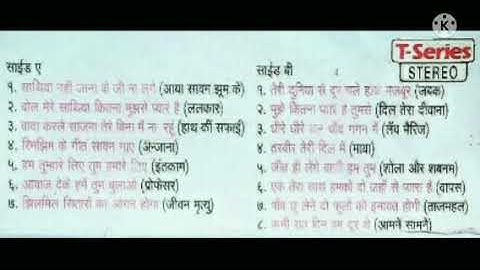 T-Series
STEREO
साईड ए
१. साथिया नही जाना के जी ना लगे (आया सावन झूम के)
२. बोल मेरे साथिया कितना मुझसे प्यार है (ललकार)
३. वादा करले साजना तेरे बिना मैं ना रहूं (हाथ की सफाई)
४. रिमझिम के गीत सावन गाए (अन्जाना)
५. हम तुम्हारे लिए तुम हमारे लिए (इंतकाम)
६. आवाज देके हमें तुम बुलाओ (प्रोफेसर)
७. झिलमिल सितारों का आंगन होगा (जीवन मृत्यु)
साईड बी
१. तेरी दुनिया से दूर चले होके मजबूर (जबक)
२. मुझे कितना प्यार है तुमसे (दिल तेरा दीवाना)
३. धीरे धीरे चल चाँद गगन में (लॅव मॅरिज)
४. तस्वीर तेरी दिल में (माया)
५. जीत ही लेंगे बाजी हम तुम (शोला और शबनम)
६. एक तेरा साथ हमको दो जहाँ से प्यारा है (वापस)
७. पाँव छू लेने दो फूलों को इनायत होगी (ताजमहल)
८. कभी रात दिन हम दूर थे (आमनें सामनें)